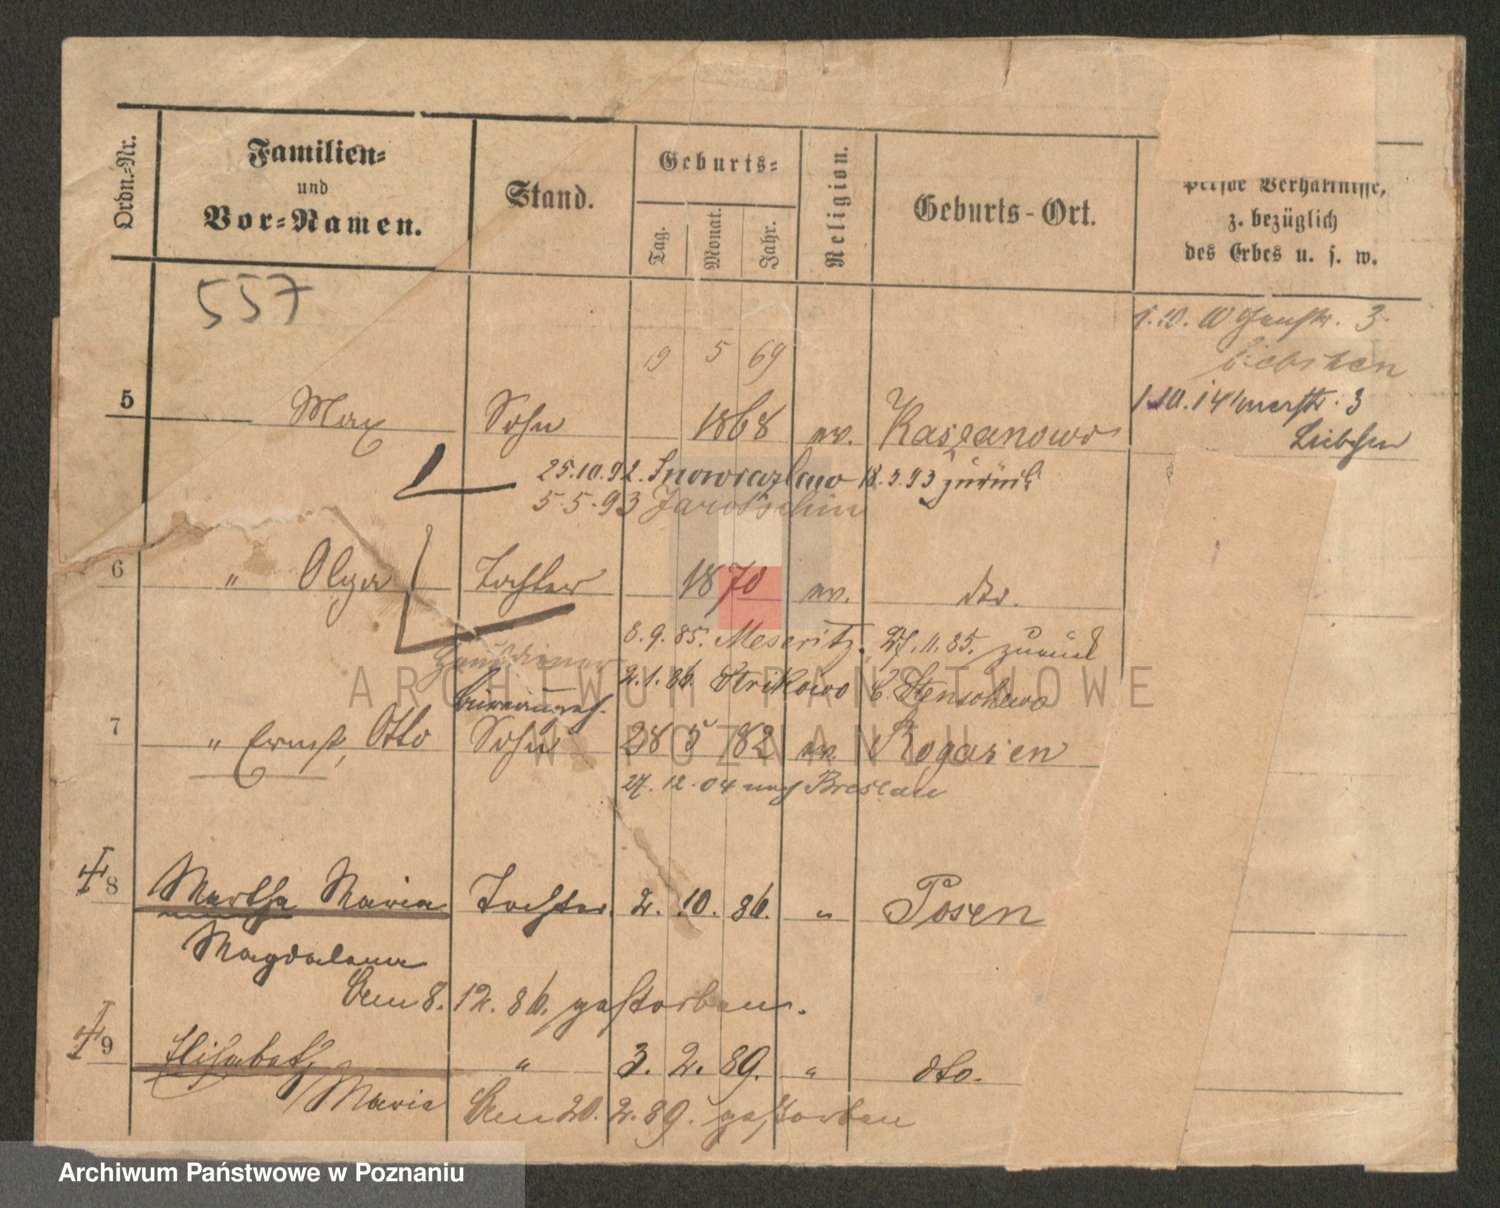 Ordn.-Nr.
Familien- und Vor-Namen.
Stand.
Geburts-
Tag.
Monat.
Jahr.
Religion.
Geburts-Ort.
Verhältnisse,
z. bezüglich
des Erbes u. s. w.
557
1.10. 10 3
19 5 69
Liebchen
5 Max Sohn 1868 ev. Kaszanowo
1.10.14 3
Liebchen
25.10.92. Inowrazlaw 18.3.93 zurück
5.5.93 Jarotschin
6 " Olga Tochter 1870 ev. dto.
8.9.85. Meseritz, 27.11.85. zurück
2.1.86 Strikowo b. Stenschewo
7 " Ernst, Otto Sohn 28 5 82 ev. Rogasen
27.12.04 nach Breslau
8 Martha Maria Tochter 2. 10. 86. " Posen
Magdalena
den 8. 12. 86. gestorben.
9 Elisabeth " 3. 2. 89. " dto.
Marie
den 20. 2. 89. gestorben
ARCHIWUM PAŃSTWOWE
W POZNANIU
Archiwum Państwowe w Poznaniu